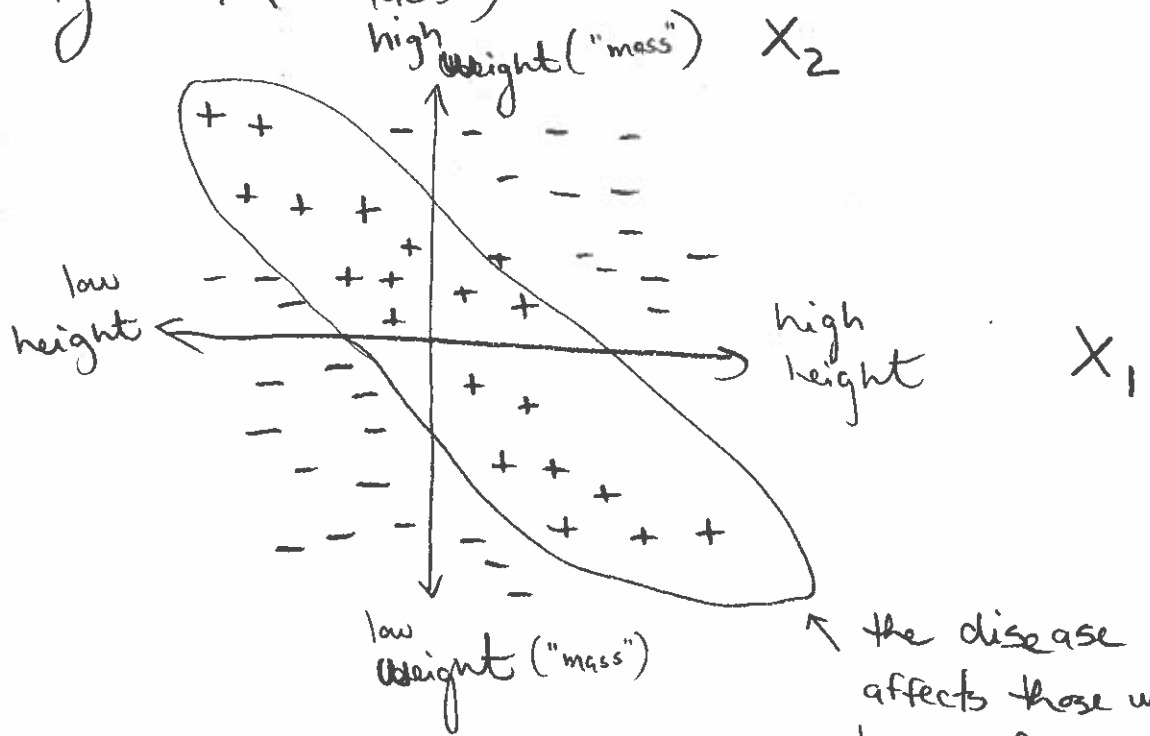 high
weight ("mass") X₂
low
height
high
height
X₁
low
weight ("mass")
the disease
affects those